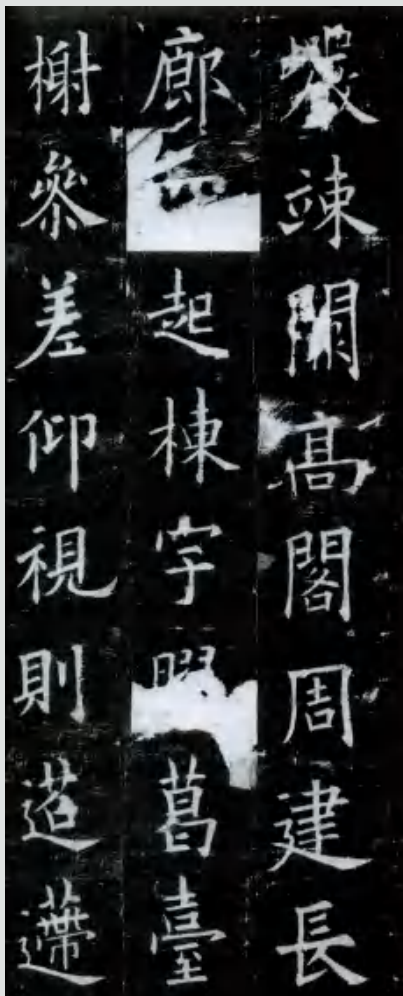 竦闕高閣周建長
廊起棟宇葛臺
榭參差仰視則迢遰